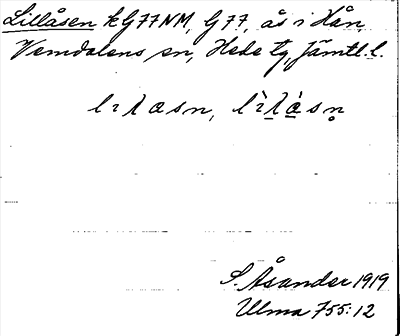 Lillåsen k G77NM, G77, ås i Hån,
Vemdalens sn, Hede tg, Jämtl. l.
lɩλasn, lɩ̀λàsn̥
S. Åsander 1919
Ulma 755:12